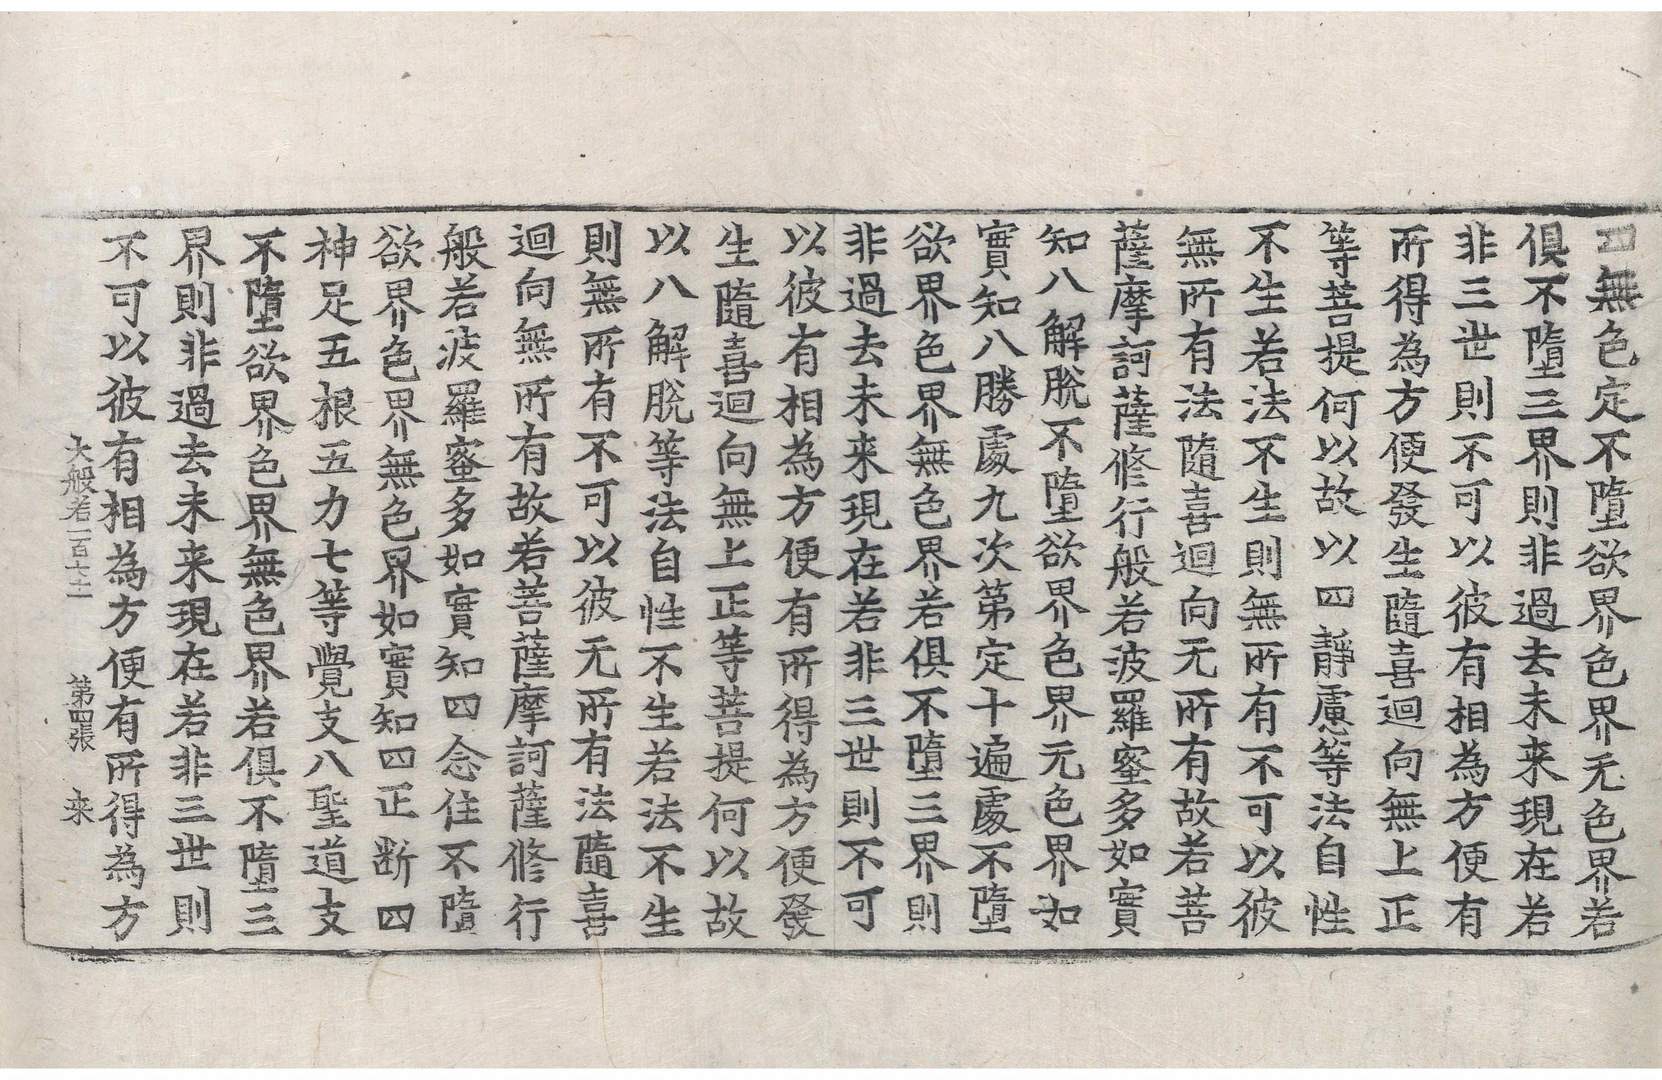 四無色定不墮欲界色界无色界若
俱不墮三界則非過去未来現在若
非三世則不可以彼有相為方便有
所得為方便發生隨喜迴向無上正
等菩提何以故以四靜慮等法自性
不生若法不生則無所有不可以彼
無所有法隨喜迴向无所有故若菩
薩摩訶薩修行般若波羅蜜多如實
知八解脫不墮欲界色界无色界如
實知八勝處九次第定十遍處不墮
欲界色界無色界若俱不墮三界則
非過去未来現在若非三世則不可
以彼有相為方便有所得為方便發
生隨喜迴向無上正等菩提何以故
以八解脫等法自性不生若法不生
則無所有不可以彼无所有法隨喜
迴向無所有故若菩薩摩訶薩修行
般若波羅蜜多如實知四念住不墮
欲界色界無色界如實知四正断四
神足五根五力七等覺支八聖道支
不墮欲界色界無色界若俱不墮三
界則非過去未来現在若非三世則
不可以彼有相為方便有所得為方
大般若一百七十 第四張 来